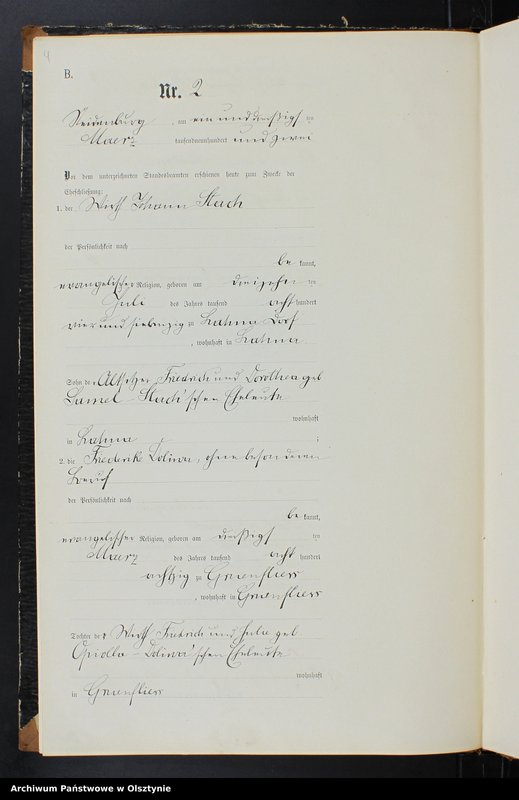 4
B.
Nr. 2
Neidenburg, am ein und dreißigs ten
Maerz tausendneunhundert und zwei
Vor dem unterzeichneten Standesbeamten erschienen heute zum Zwecke der
Eheschließung:
1. der Wirth Johann Stach
der Persönlichkeit nach
be kannt,
evangelischer Religion, geboren am dreizehn ten
Juli des Jahres tausend acht hundert
vier und siebenzig zu Lahna Dorf
, wohnhaft in Lahna
Sohn de r Altsitzer Friedrich und Dorothea geb
Stach'schen Eheleute
wohnhaft
in Lahna ;
2. die Friederike, ohne besonderen
Beruf
der Persönlichkeit nach
be kannt,
evangelischer Religion, geboren am dreißigs ten
Maerz des Jahres tausend acht hundert
achtzig zu Gruenfliess
, wohnhaft in Gruenfliess
Tochter de r Wirth Friedrich und Julie geb
Eheleute
wohnhaft
in Gruenfliess
Archiwum Państwowe w Olsztynie